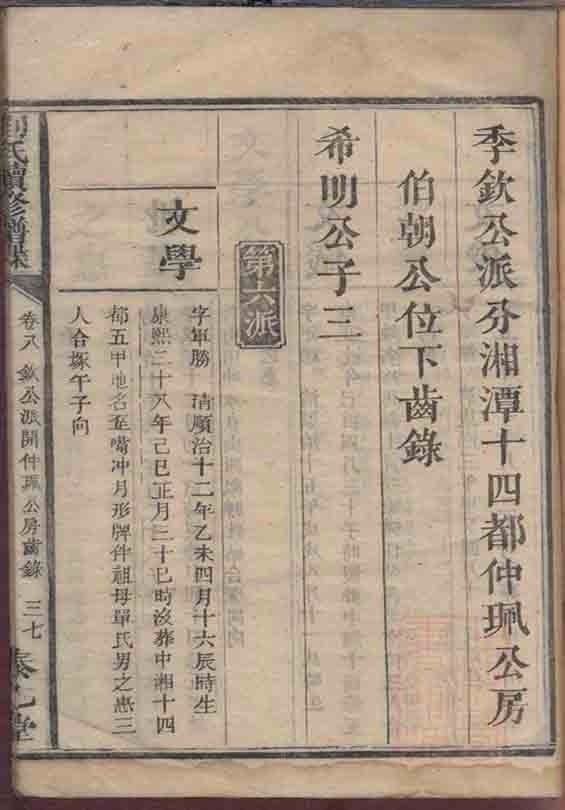 季欽公派分湘潭十四都仲珮公房
伯朝公位下齒錄
希明公子三
第六派
文學
字軍勝 清順治十二年乙未四月十六辰時生
康熙二十八年己巳正月三十巳時沒葬中湘十四
都五甲地名至嘴冲月形牌仵祖母單氏男之惠三
人合塚午子向
劉氏續修譜牒
卷八 欽公派開仲珮公房齒錄 三七